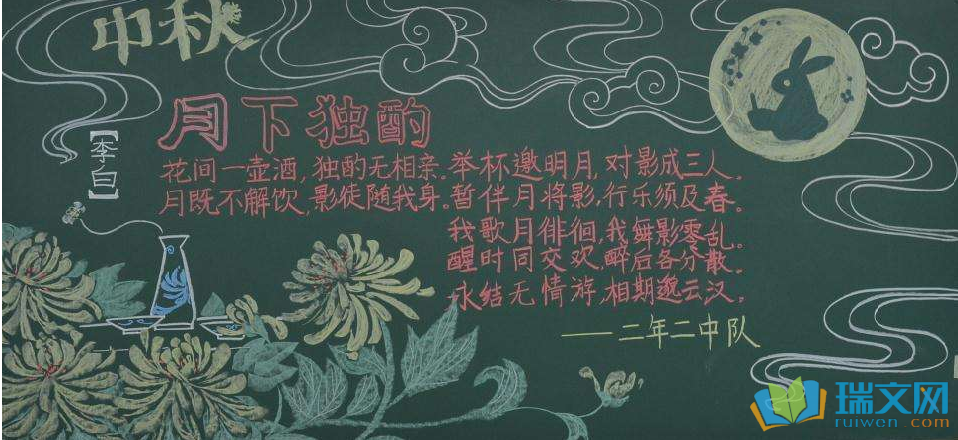 中秋
月下独酌
【李白】
花间一壶酒,独酌无相亲.举杯邀明月,对影成三人.
月既不解饮,影徒随我身.暂伴月将影,行乐须及春.
我歌月徘徊,我舞影零乱.
醒时同交欢,醉后各分散.
永结无情游,相期邈云汉.
——二年二中队
瑞文网
ruiwen.com